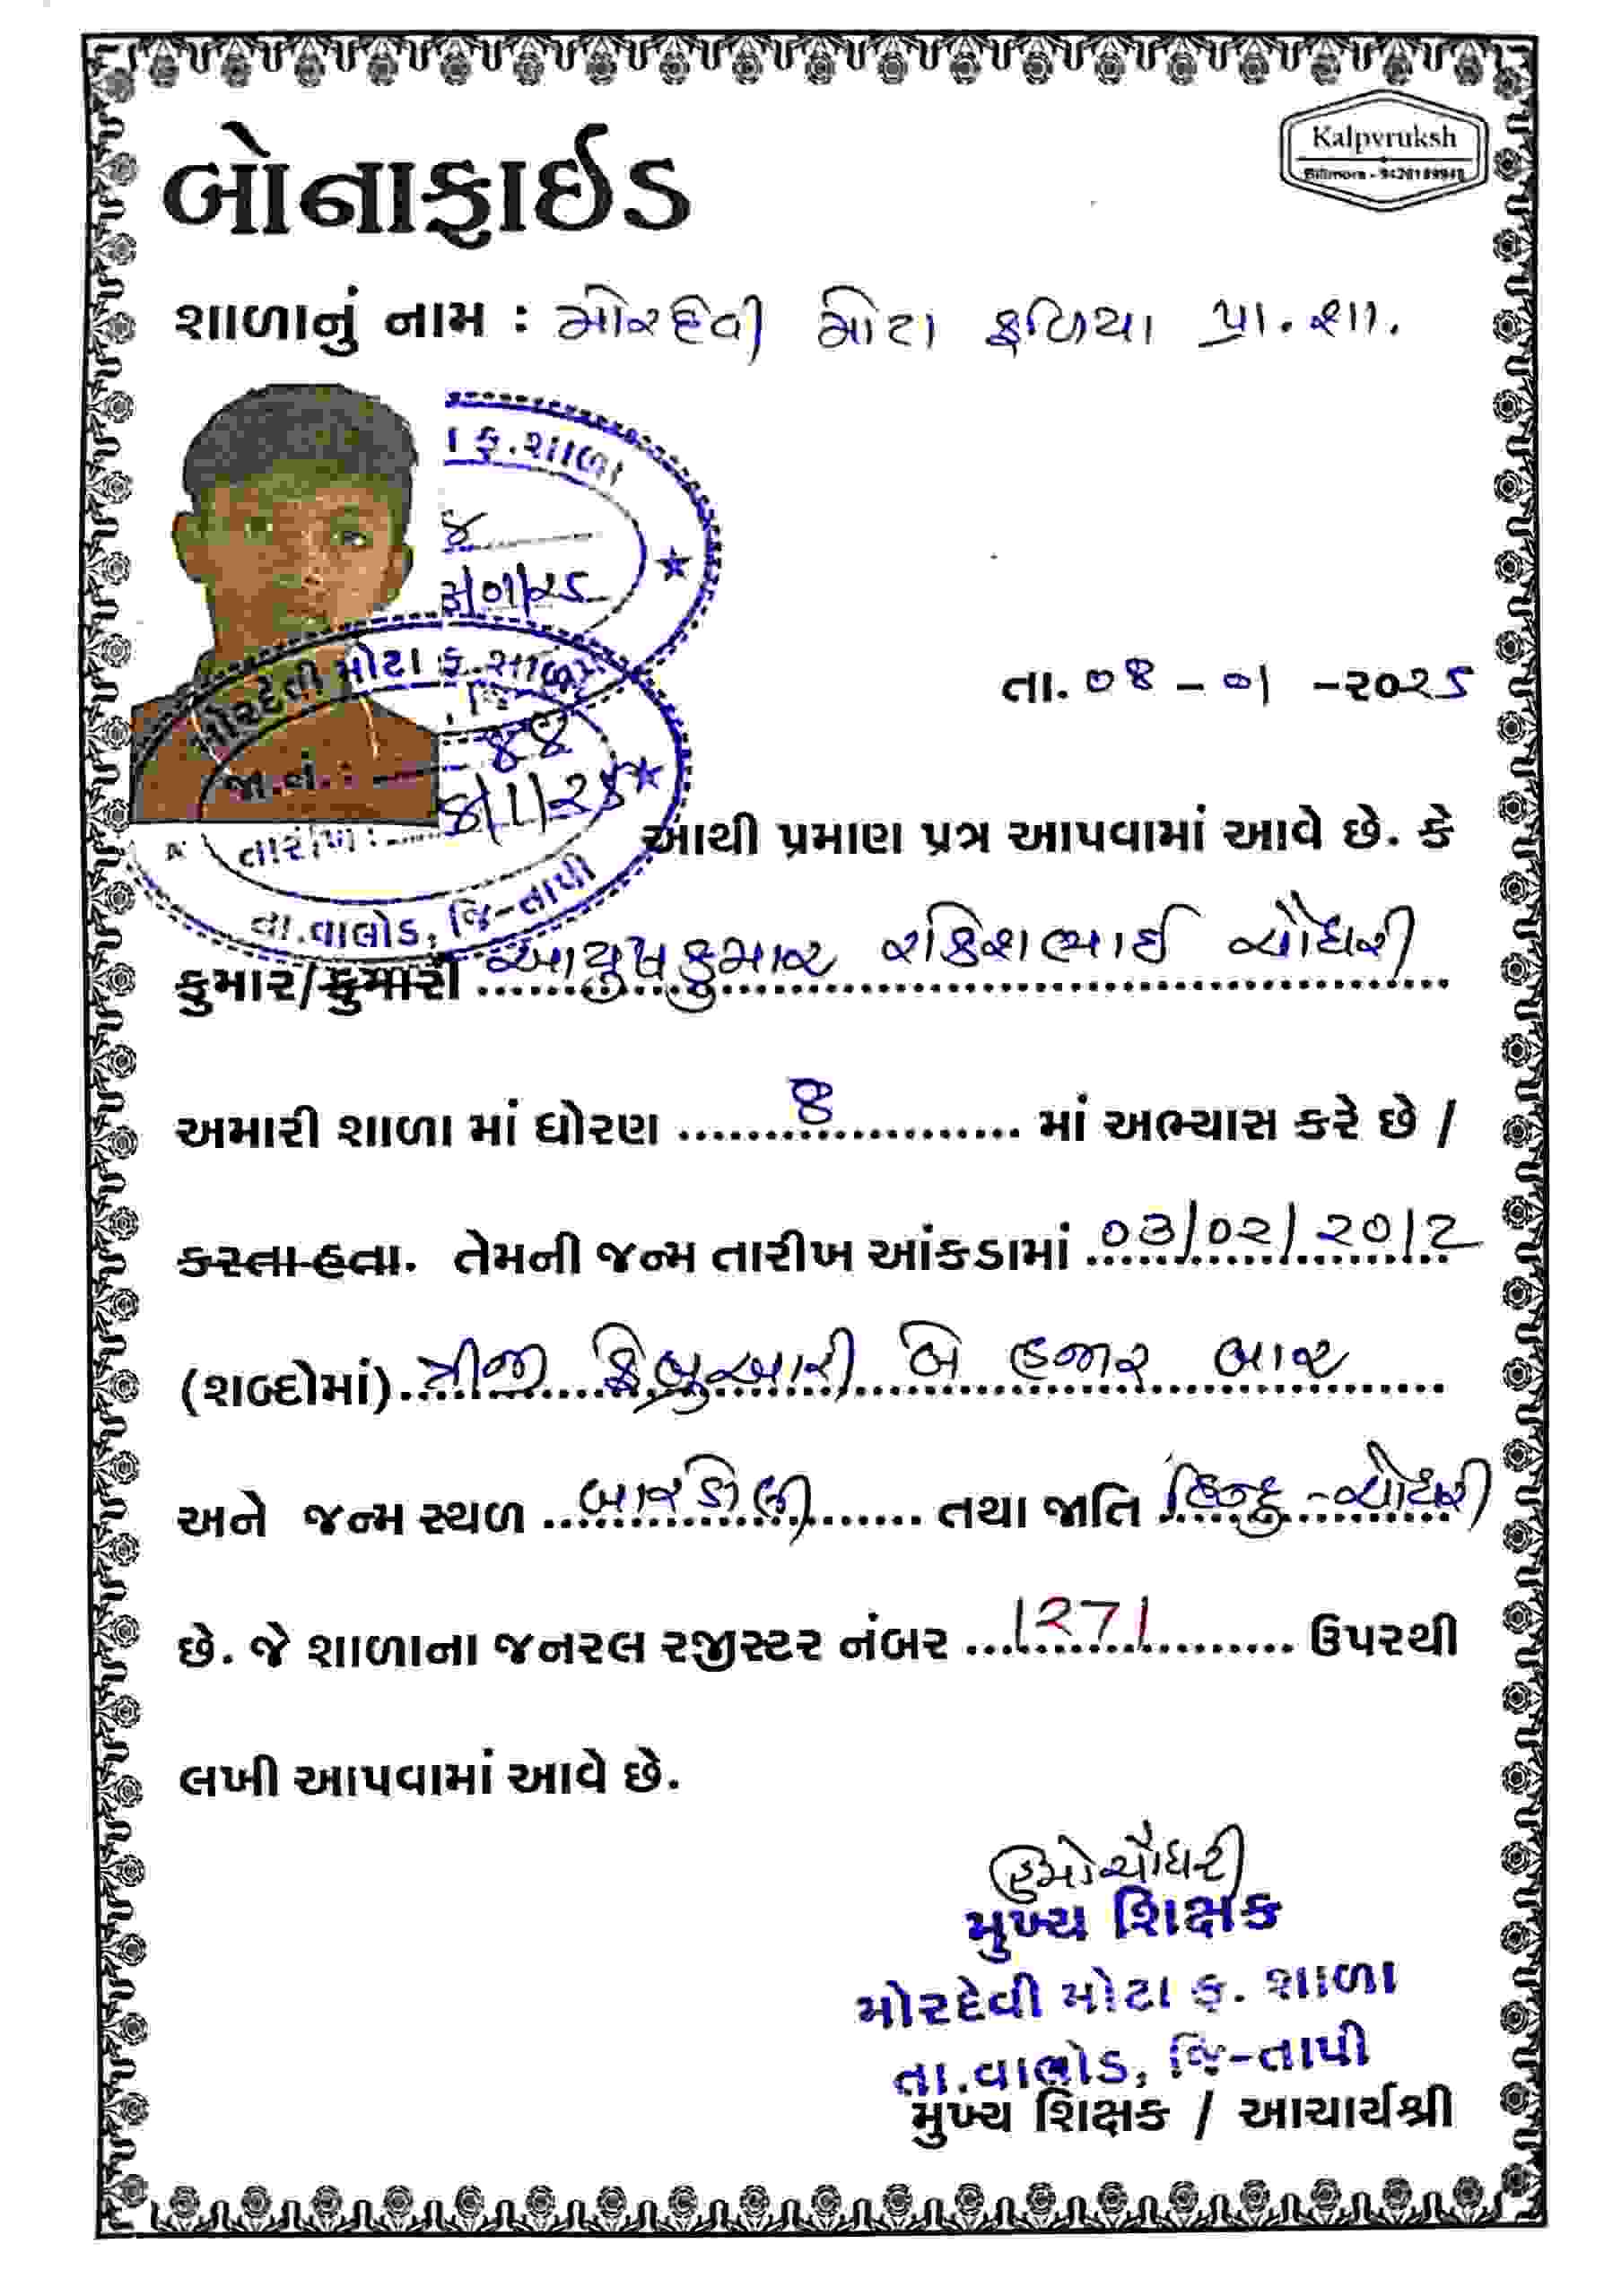 Kalpvruksh
Billimora - 9426189948
બોનાફાઈડ
શાળાનું નામ : મોરદેવી મોટા ફળિયા પ્રા. શા.
ફ.શાળા
તા. ૦૪ - ૦૧ - ૨૦૨૫
મોરદેવી મોટા ફ.શાળા
જા.નં. : ૪૪
તારીખ : ૪/૧/૨૫
તા.વાલોડ, જિ-તાપી
આથી પ્રમાણ પત્ર આપવામાં આવે છે. કે
કુમાર/કુમારી આયુષકુમાર રાકેશભાઈ ચૌધરી
અમારી શાળા માં ધોરણ ૪ માં અભ્યાસ કરે છે /
કરતા હતા. તેમની જન્મ તારીખ આંકડામાં 03/02/2012
(શબ્દોમાં) ત્રીજી ફેબ્રુઆરી બે હજાર બાર
અને જન્મ સ્થળ બારડોલી તથા જાતિ હિન્દુ-ચૌધરી
છે. જે શાળાના જનરલ રજીસ્ટર નંબર 1271 ઉપરથી
લખી આપવામાં આવે છે.
મુખ્ય શિક્ષક
મોરદેવી મોટા ફ. શાળા
તા.વાલોડ, જિ-તાપી
મુખ્ય શિક્ષક / આચાર્યશ્રી